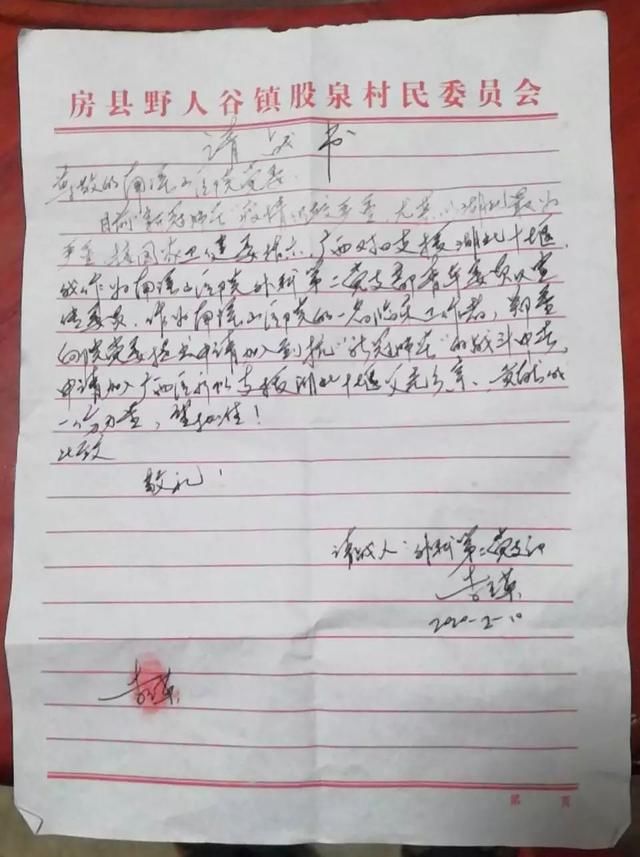 房县野人谷镇股泉村民委员会
请战书
尊敬的南溪山医院党委:
目前"新冠肺炎"疫情比较严重,尤其以湖北最为
严重,按国家卫健委指示,广西对口支援湖北十堰,
我作为南溪山医院外科第二党支部青年委员及宣
传委员,作为南溪山医院的一名临床工作者,郑重
向院党委提出申请加入到抗"新冠肺炎"的战斗中去,
申请加入广西医疗队支援湖北十堰父老乡亲、贡献我
一份力量,望批准!
此致
敬礼!
请战人:外科第二党支部
李
2020-2-10
李
第 页